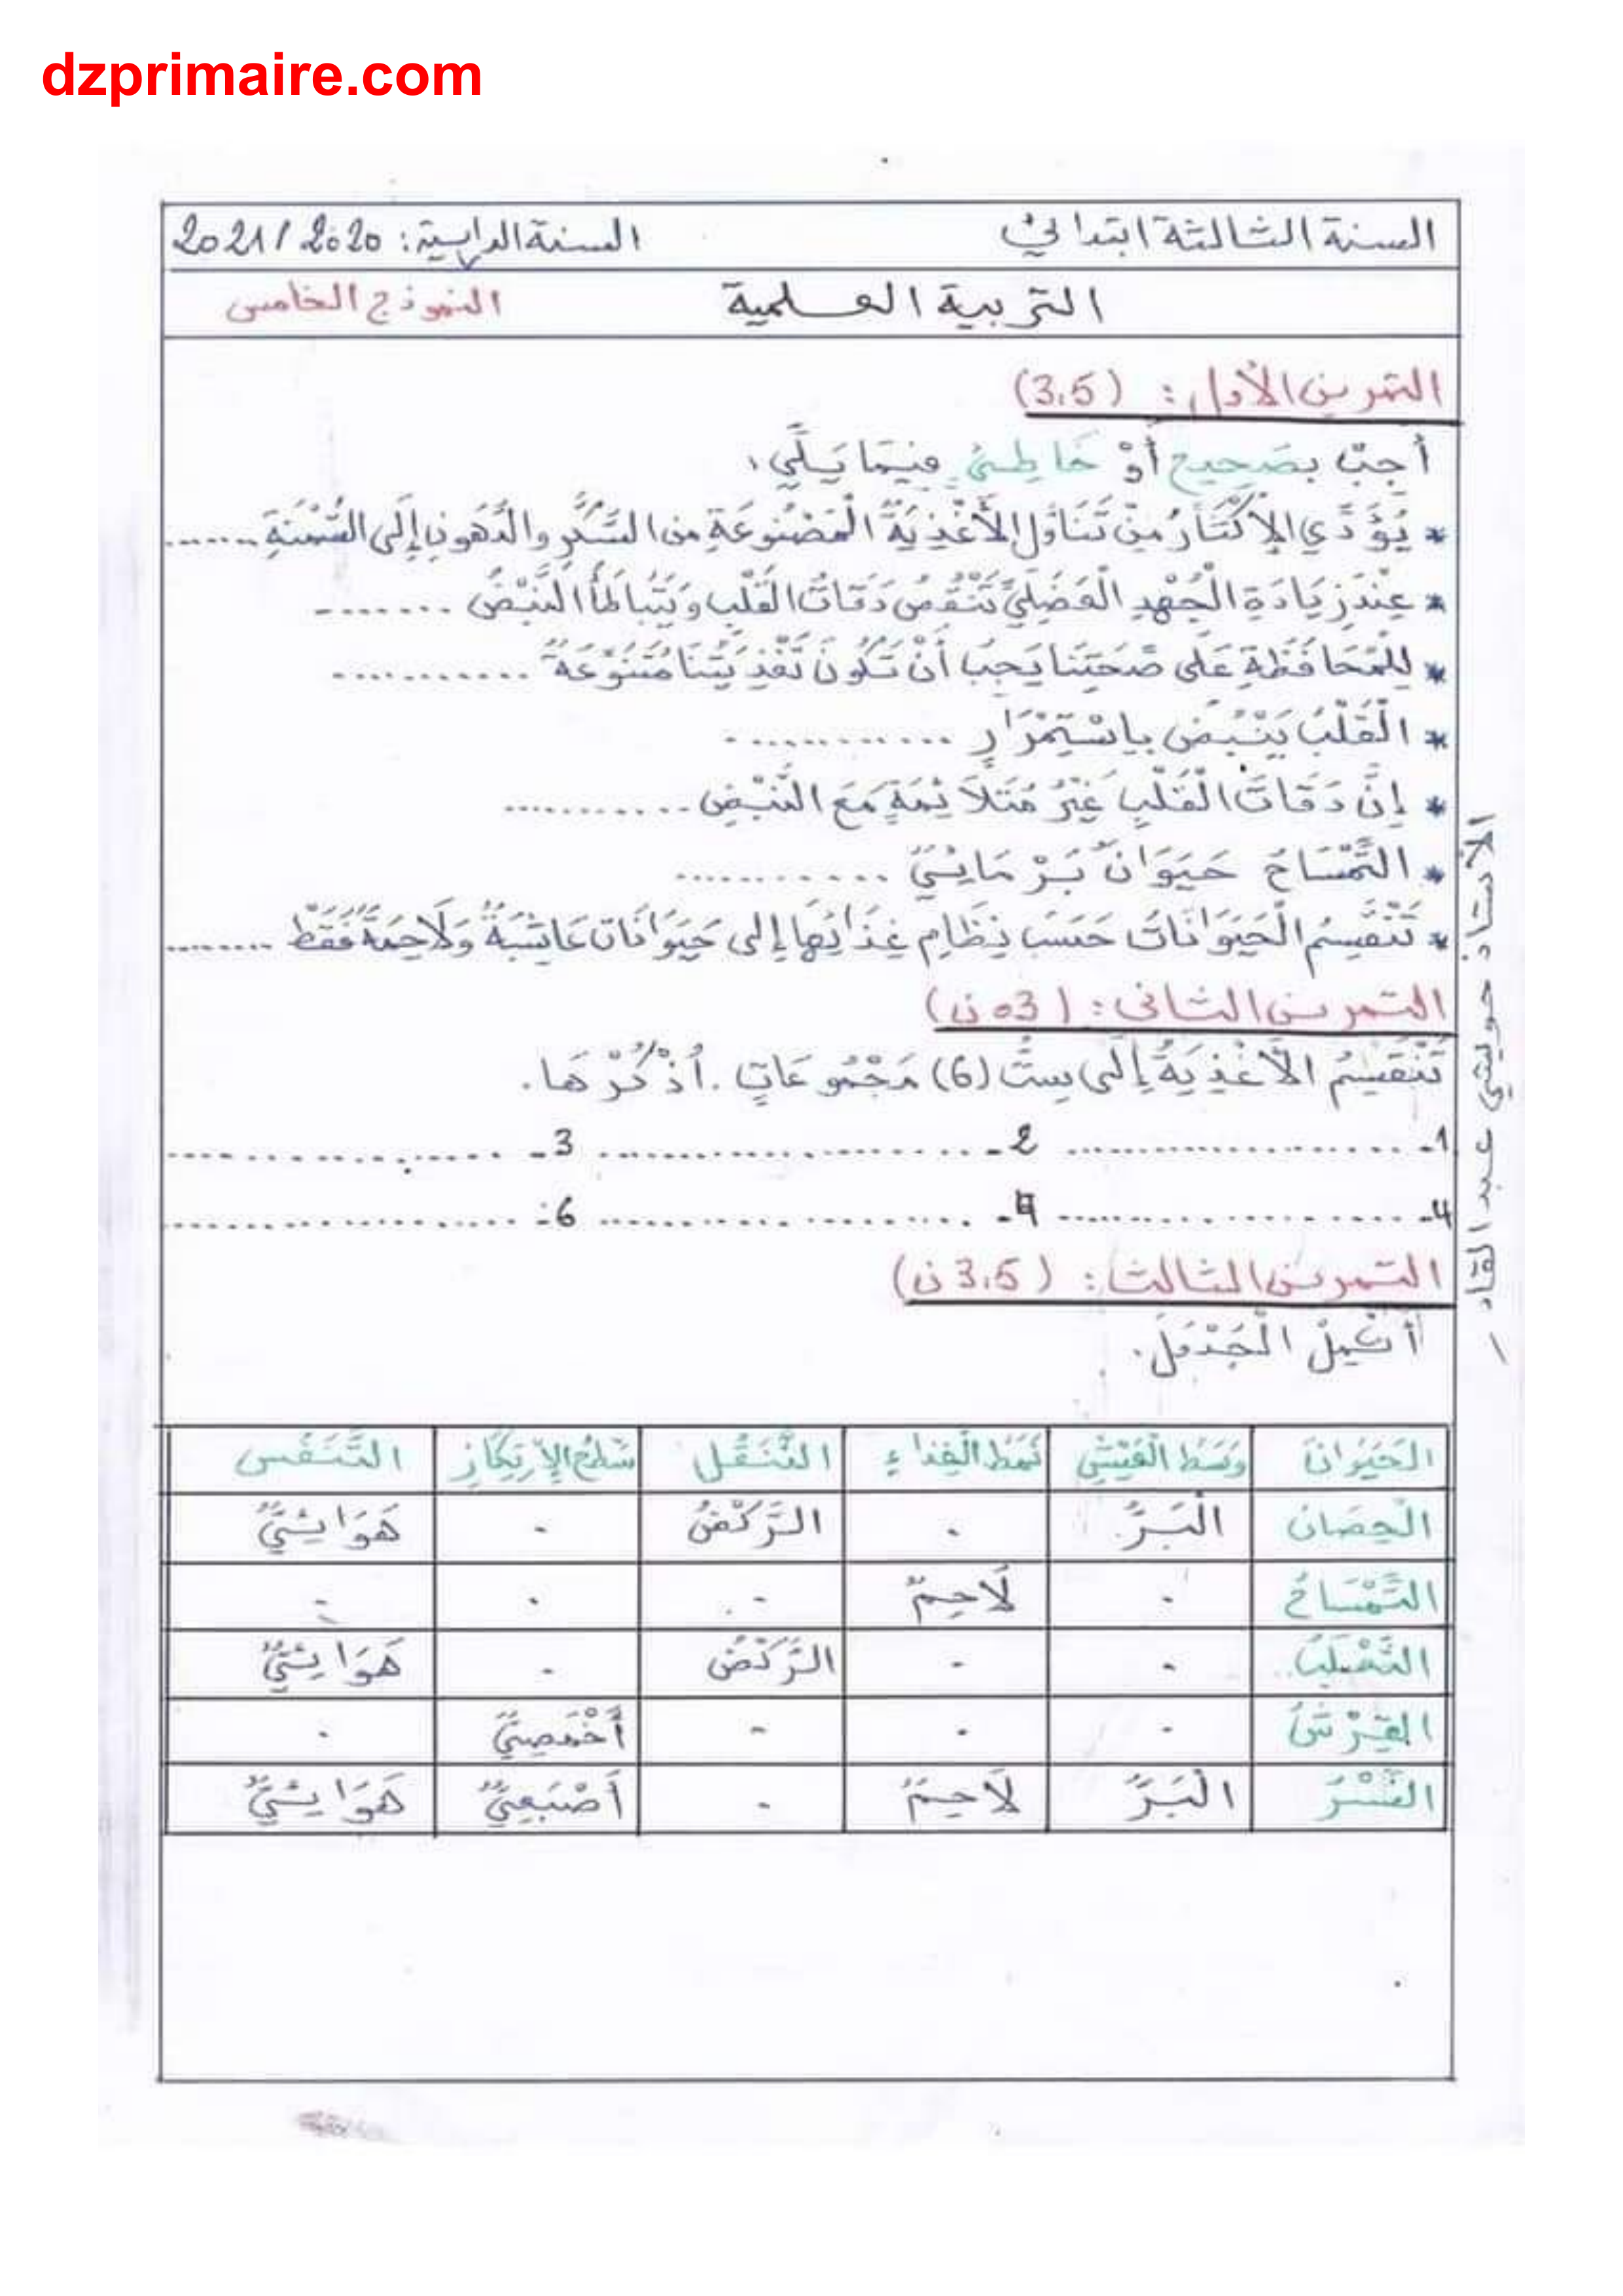 dzprimaire.com
السنة الثالثة ابتدائي السنة الدراسية: 2020 / 2021
التربية العلمية النموذج الخامس
التمرين الأول: (3.5)
أَجِبْ بِصَحِيحٍ أَوْ خَاطِئٍ فِيمَا يَلِي:
* يُؤَدِّي الإِكْثَارُ مِنْ تَنَاوُلِ الأَغْذِيَةِ الْمَصْنُوعَةِ مِنَ السُّكَّرِ والدُّهُونِ إِلَى السُّمْنَةِ .......
* عِنْدَ زِيَادَةِ الْجُهْدِ الْعَضَلِيِّ تَنْقُصُ دَقَاتُ الْقَلْبِ وَيَتَبَاطَأُ النَّبْضُ ........
* لِلْمُحَافَظَةِ عَلَى صِحَّتِنَا يَجِبُ أَنْ تَكُونَ تَغْذِيَتُنَا مُتَنَوِّعَةً ...........
* الْقَلْبُ يَنْبُضُ بِاسْتِمْرَارٍ ............
* إِنَّ دَقَاتَ الْقَلْبِ غَيْرُ مُتَلاَئِمَةٍ مَعَ النَّبْضِ ...........
* التِّمْسَاحُ حَيَوَانٌ بَرْمَائِيٌّ ...........
* تَنْقَسِمُ الْحَيَوَانَاتُ حَسَبَ نِظَامِ غِذَائِهَا إِلَى حَيَوَانَاتٍ عَاشِبَةٌ وَلاَحِمَةٌ فَقَطْ ........
التمرين الثاني: (03 ن)
تَنْقَسِمُ الأَغْذِيَةُ إِلَى سِتِّ (6) مَجْمُوعَاتٍ. اُذْكُرْهَا.
1- ................... 2- ................... 3- ...................
4- ................... 4- ................... 6- ...................
التمرين الثالث: (3.5 ن)
أَكْمِلْ الْجَدْوَلَ.
الحَيَوَانُ وَسَطُ الْعَيْشِ نَمَطُ الْغِذَاءِ التَّنَقُّلُ سَطْحُ الإِرْتِكَازِ التَّنَفُّسُ
الْحِصَانُ الْبَرُّ . الرَّكْضُ . هَوَائِيٌّ
التِّمْسَاحُ . لاَحِمٌ . . .
الثَّعْلَبُ . . الرَّكْضُ . هَوَائِيٌّ
القِرْشُ . . . أَخْمَصِيٌّ .
النَّسْرُ الْبَرُّ لاَحِمٌ . أَصْبَعِيٌّ هَوَائِيٌّ
الأستاذ حويشي عبد القادر